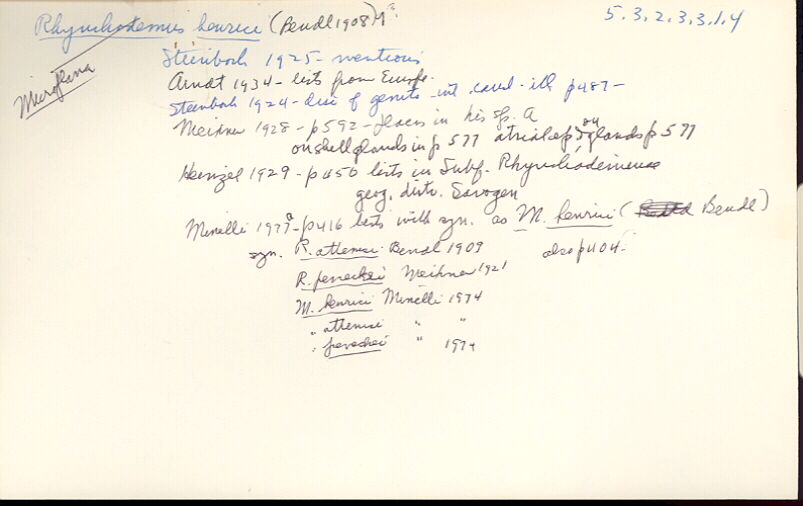 Rhynchodemus henrici (Bendl 1908) M 5.3.2.3.3.1.4
Microplana
Steinbock 1925 - mentions
Arndt 1934 - lists from Europe.
Steinbock 1924 - disc of genito-int. canal - ill p487 -
Meixner 1928 - p592 - places in his gp. A
on shell glands in p 577 atrial ep. & on glands p 577
Heinzel 1929 - p450 lists in Subf. Rhynchodeminae
geog. distr.
Minelli 1977a - p416 lists with syn. as M. henrici (Bendl)
syn. R. attemsi Bendl 1909 also p404.
R. peneckei Meixner 1921
M. henrici Minelli 1974
" attemsi " "
" peneckei " 1974